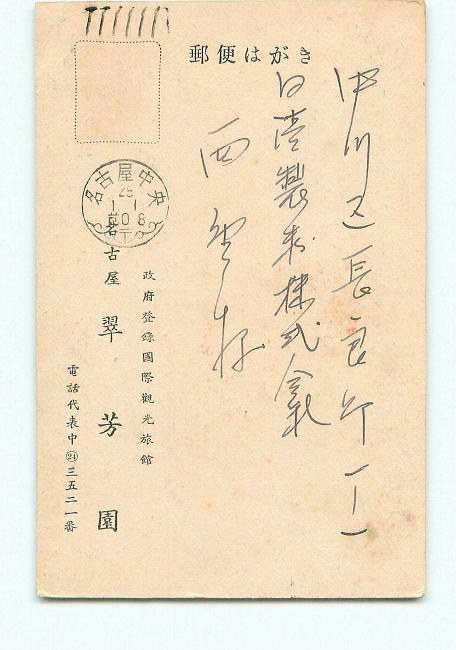 郵便はがき
中川区長良町一ー一
日陸製本株式会社
西
名古屋中央
28
1 1
0 8
政府登錄國際觀光旅館
名古屋 翠芳園
電話代表中㉔三五二一番